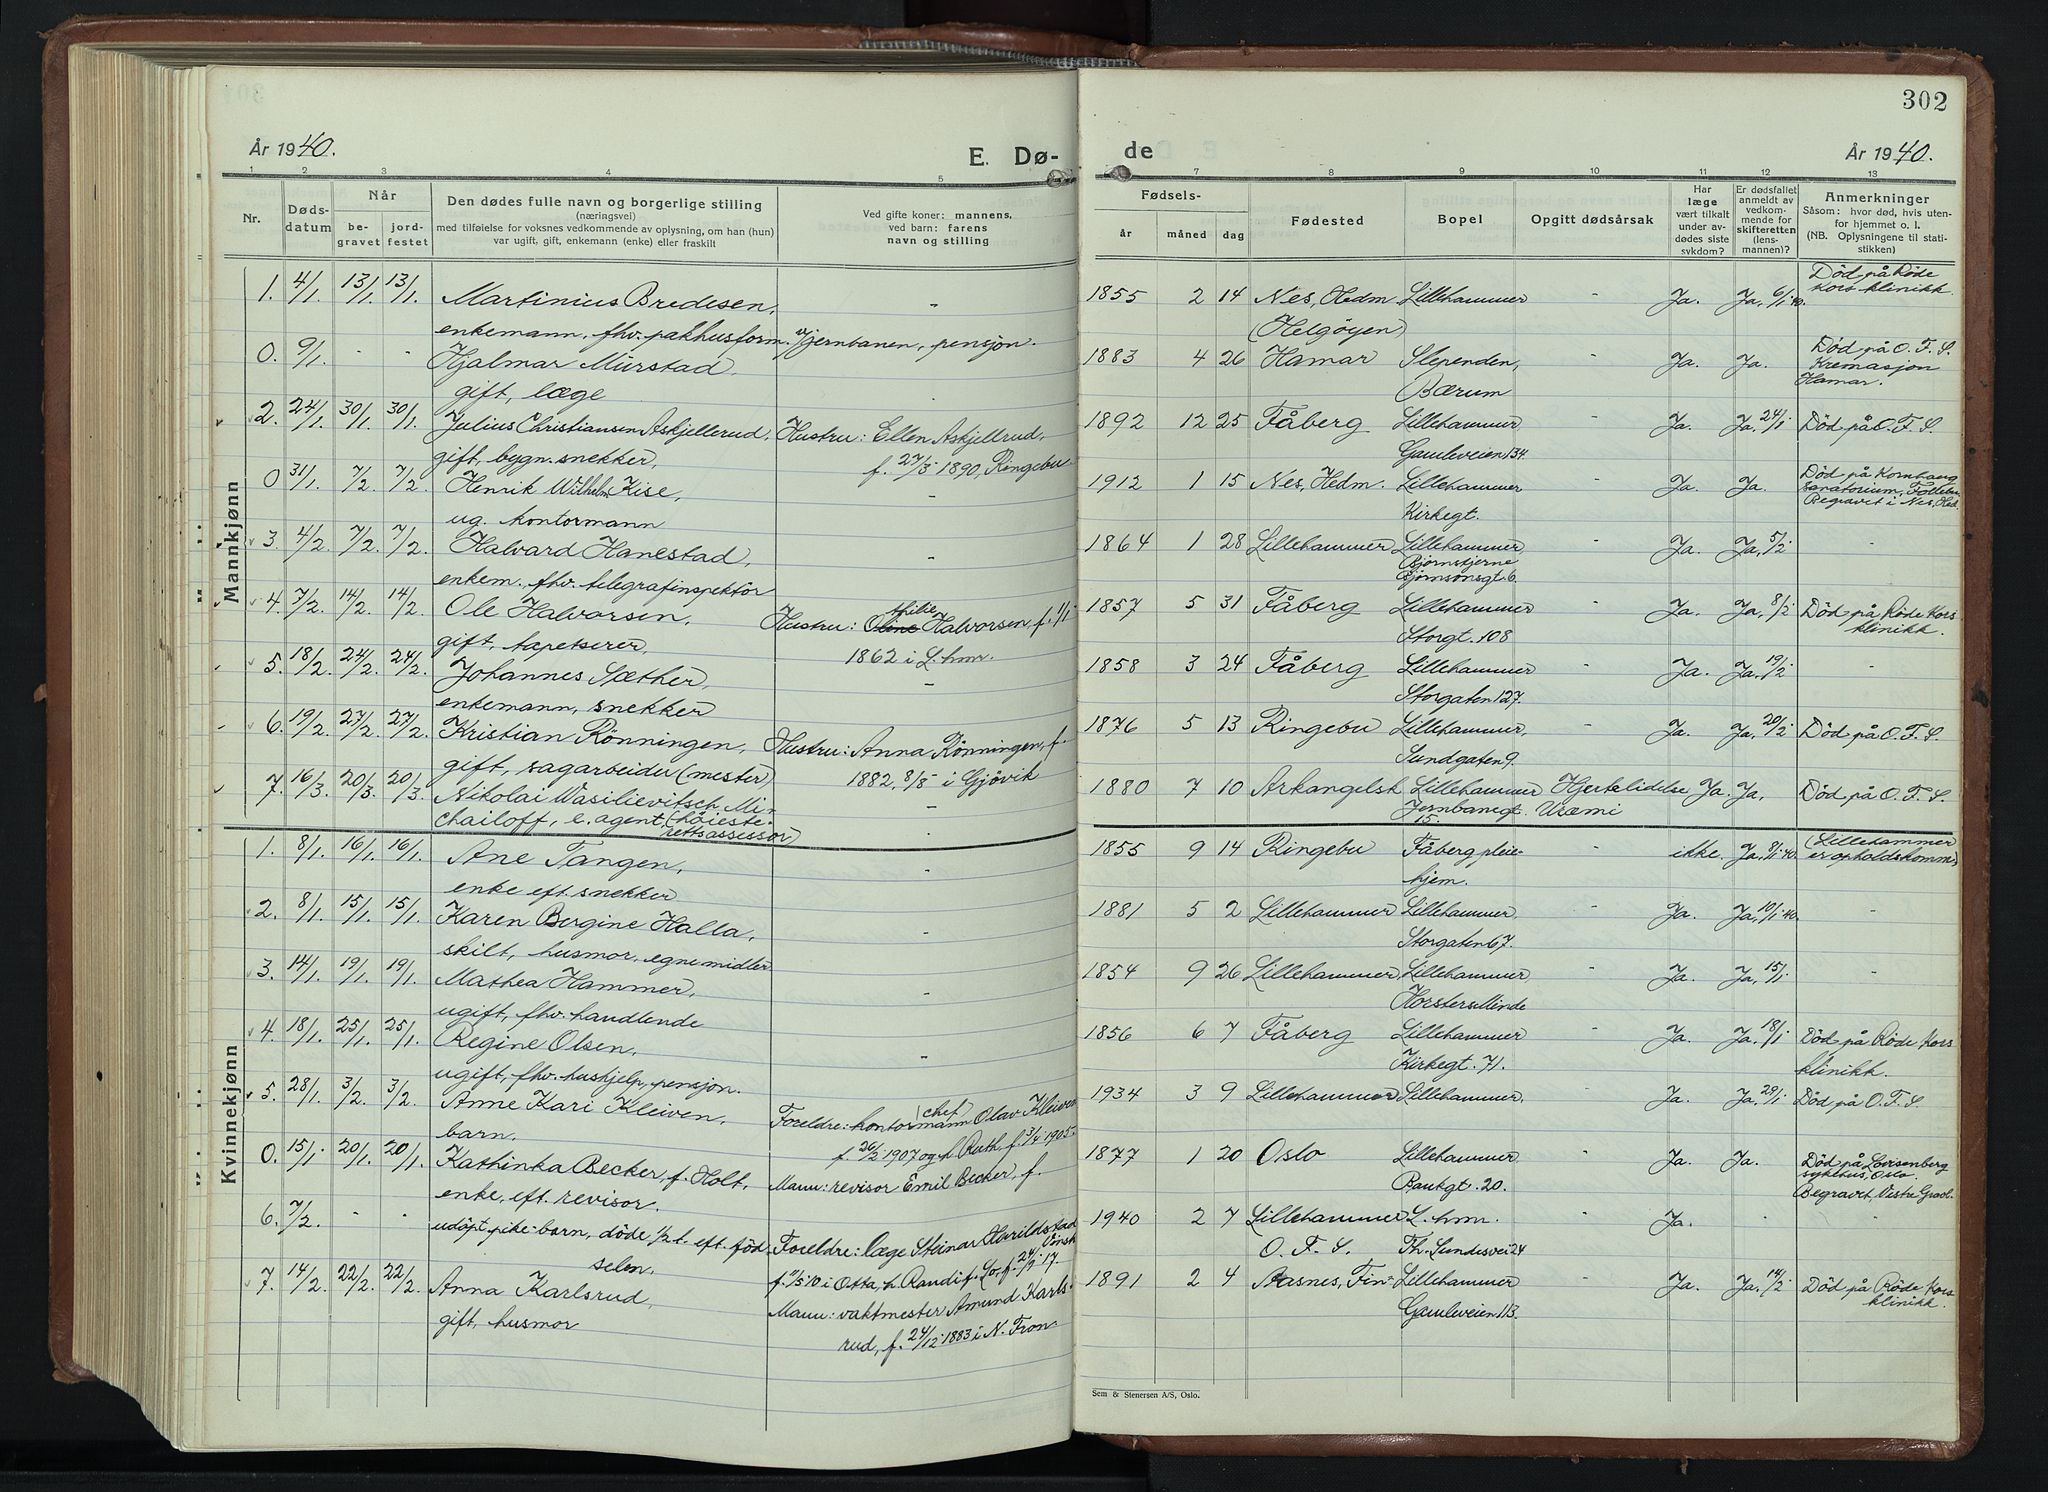 302
År 1940.
E. Dø-
de
År 1940.
1 2 3 4 5 7 8 9 10 11 12 13
Nr.
Døds-
datum
Når
be-
gravet
jord-
festet
Den dødes fulle navn og borgerlige stilling
(næringsvei)
med tilføielse for voksnes vedkommende av oplysning, om han (hun)
var ugift, gift, enkemann (enke) eller fraskilt
Ved gifte koner: mannens,
ved barn: farens
navn og stilling
Fødsels-
år
måned
dag
Fødested
Bopel
Opgitt dødsårsak
Har
læge
vært tilkalt
under av-
dødes siste
sykdom?
Er dødsfallet
anmeldt av
vedkom-
mende for
skifteretten
(lens-
mannen)?
Anmerkninger
Såsom: hvor død, hvis uten-
for hjemmet o. l.
(NB. Oplysningene til stati-
stikken)
Mankjønn
1. 4/1. 13/1. 13/1. Martinius Bredesen, - 1855 2 14 Nes, Hedm. Lillehammer - Ja. Ja, 6/1 40. Død på Røde
Kors klinikk.
enkemann, fhv. pakhusform. v/jernbanen, pensjon. (Helgøyen)
0. 9/1. - - Hjalmar Mürstad, 1883 4 26 Hamar Slependen, - Ja. Ja. Død på O. F. S.
gift, læge - Bærum Kremasjon
Hamar.
2. 24/1. 30/1. 30/1. Julius Christiansen Askjellerud, Hustru: Ellen Askjellrud, 1892 12 25 Fåberg Lillehammer - Ja. Ja, 24/1 Død på O. F. S.
gift, bygn. snekker, f. 27/5 1890, Ringebu. Gamleveien 134.
0 31/1. 7/2. 7/2. Henrik Wilhelm Kise, - 1912 1 15 Nes, Hedm. Lillehammer - Ja. Ja. Død på Kornhaug
sanatorium, Follebu
ug. kontormann Kirkegt. Begravet i Nes, Hed.
3. 4/2. 7/2. 7/2. Halvard Hanestad, - 1864 1 28 Lillehammer Lillehammer - Ja. Ja, 5/2 -
enkem. fhv. telegrafinspektør Bjørnstjerne
Bjørnsonsgt. 6.
4. 7/2. 14/2. 14/2. Ole Halvorsen, Hustru: Oline thilie Halvorsen, f. 1/1 1857 5 31 Fåberg Lillehammer - Ja. Ja, 8/2 Død på Røde Kors
gift, tapetserer, 1862 i L.hm. Storgt. 108 klinikk.
5. 18/2. 24/2. 24/2. Johannes Sæther, - 1858 3 24 Fåberg Lillehammer - Ja. Ja, 19/2 -
enkemann, snekker Storgaten 127.
6. 19/2. 27/2. 27/2. Kristian Rønningen, Hustru: Anna Rønningen, f. 1876 5 13 Ringebu Lillehammer, - Ja. Ja, 20/2 Død på O. F. S.
gift, sagarbeider (mester) 1882, 8/8 i Gjøvik Sundgaten 9.
7. 16/3. 20/3. 20/3. Nikolai Wasilievitsch Mi- - 1880 7 10 Arkangelsk Lillehammer Hjertelidelse Ja. Ja, Død på O. F. S.
chailoff, e. agent (høieste- - Jernbanegt. Uræmi
rettsassessor) 15.
Kvinnekjønn
1. 8/1. 16/1. 16/1. Ane Tangen, - 1855 9 14 Ringebu Fåberg pleie- ikke. Ja, 8/1 40. (Lillehammer
enke eft. snekker hjem. er opholdskomm.)
2. 8/1. 15/1. 15/1. Karen Bergine Halla, - 1881 5 2 Lillehammer Lillehammer, - Ja. Ja, 10/1 40. -
skilt, husmor, egne midler Storgaten 67.
3. 14/1. 19/1. 19/1. Mathea Hammer, - 1854 9 26 Lillehammer Lillehammer, - Ja. Ja, 15/1 -
ugift, fhv. handlende Horsters Minde
4. 18/1. 25/1. 25/1. Regine Olsen, - 1856 6 7 Fåberg Lillehammer - Ja. Ja. 18/1 Død på Røde Kors
ugift, fhv. hushjelp, pensjon. Kirkegt. 71. klinikk.
5. 28/1. 3/2. 3/2. Anne Kari Kleiven, Foreldre: kontormann chef Olav Kleiven 1934 3 9 Lillehammer Lillehammer. - Ja. Ja, 29/1 Død på O. F. S.
barn. f. 26/2 1907 og h. Ruth, f. 3/4 1905.
0. 15/1. 20/1. 20/1. Kathinka Becker, f. Holt, Mann: revisor Emil Becker, f. 1877 1 20 Oslo Lillehammer - Ja. Ja. Død på Lovisenberg
sykehus, Oslo.
enke, eft. revisor. Bankgt. 20. Begravet, Vestre Gravl.
6. 7/2. - - udøpt pike-barn, døde 1/2 t. eft. fød- Foreldre: læge Steinar Havrildstad 1940 2 7 Lillehammer L.hm. - Ja. - -
selen. f. 11/5 10 i Otta, h. Randi f. Lo, f. 24/9 17. O. F. S. Th. Lundesvei 24
7. 14/2. 22/2. 22/2. Anna Karlsrud, Mann: vaktmester Amund Karls- 1891 2 4 Aasnes, Fin- Lillehammer - Ja. Ja. 14/2 Død på Røde Kors
klinikk.
gift, husmor rud, f. 24/12 1883 i N. Fron. Gamleveien 113.
Sem & Stenersen A/S, Oslo.